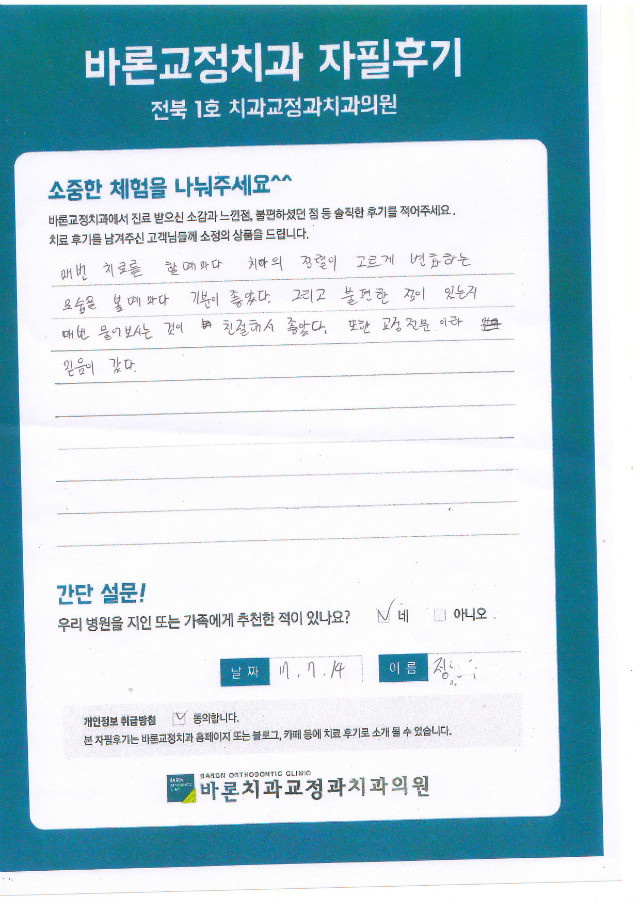 바론교정치과 자필후기
전북 1호 치과교정과치과의원
소중한 체험을 나눠주세요^^
바론교정치과에서 진료 받으신 소감과 느낀점, 불편하셨던 점 등 솔직한 후기를 적어주세요.
치료 후기를 남겨주신 고객님들께 소정의 상품을 드립니다.
매번 치료를 할때마다 치아의 정렬이 고르게 변화하는
모습을 볼때마다 기분이 좋았다. 그리고 불편한 점이 있는지
매번 물어보시는 것이 친절해서 좋았다. 또한 교정전문 이라
믿음이 갔다.
간단 설문!
우리 병원을 지인 또는 가족에게 추천한 적이 있나요? 네 아니오
날짜 17.7.14 이름 정
개인정보 취급방침 동의합니다.
본 자필후기는 바론교정치과 홈페이지 또는 블로그, 카페 등에 치료 후기로 소개 될 수 있습니다.
BARON ORTHODONTIC CLINIC
바론치과교정과치과의원